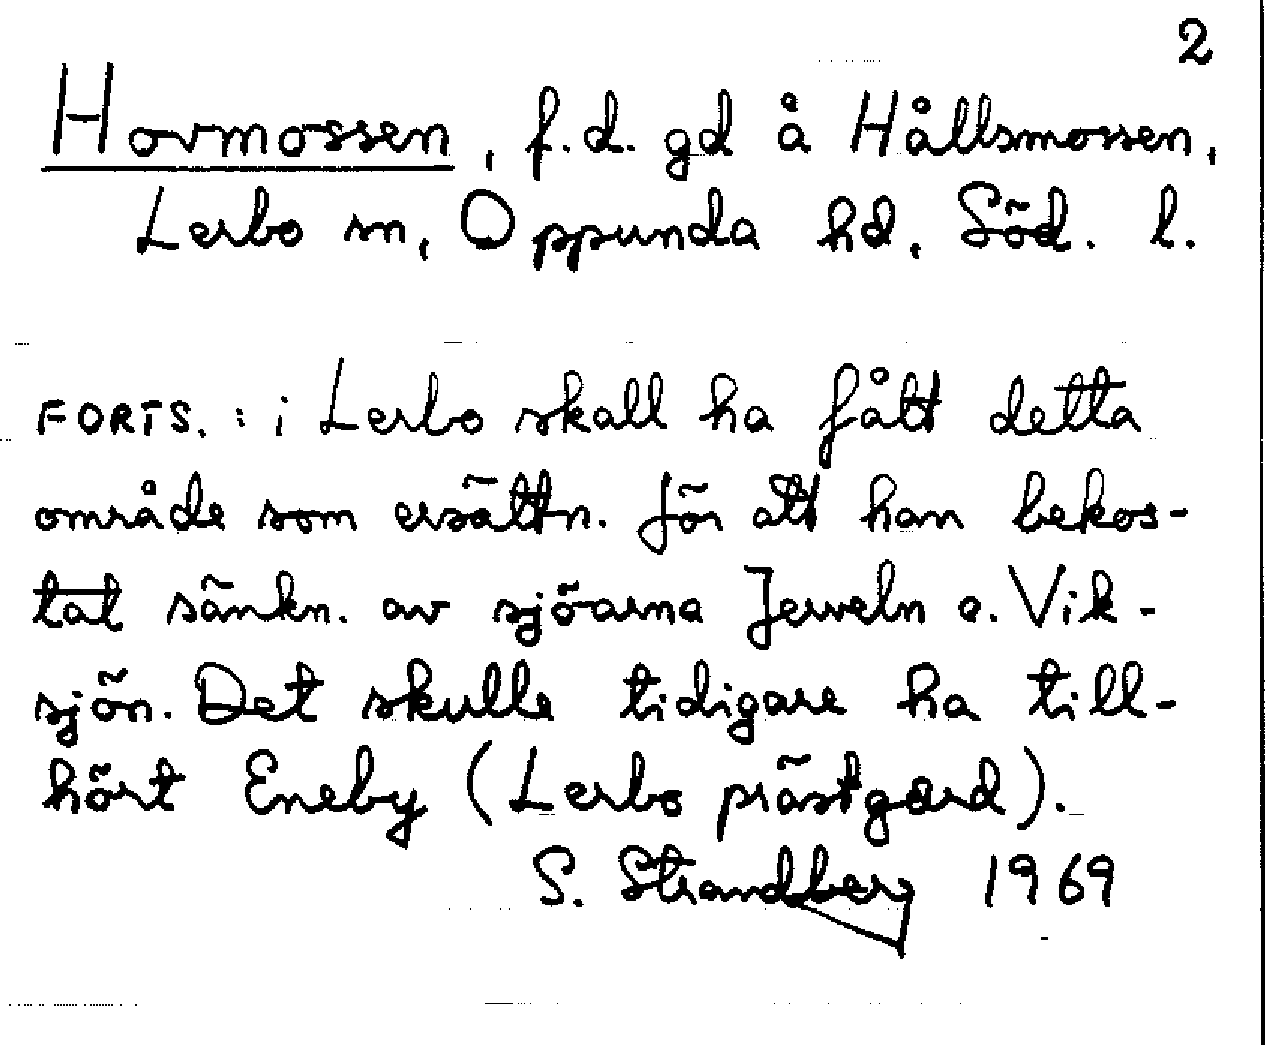 2
Hovmossen, f.d. gd å Hållsmossen,
Lerbo sn, Oppunda hd, Söd. l.
FORTS. : i Lerbo skall ha fått detta
område som ersättn. för att han bekos-
tat sänkn. av sjöarna Jerveln o. Vik-
sjön. Det skulle tidigare ha till-
hört Eneby (Lerbo prästgård).
S. Strandberg 1969